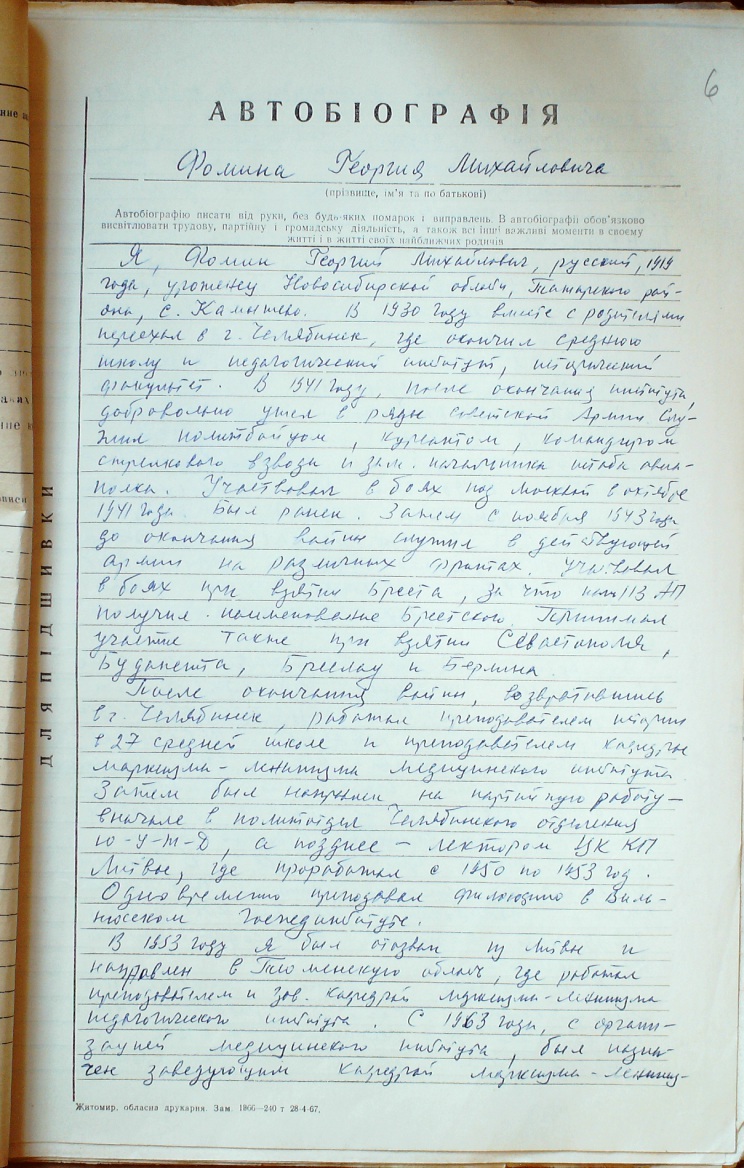 6
АВТОБІОГРАФІЯ
Фомина Георгия Михайловича
(прізвище, ім'я та по батькові)
Автобіографію писати від руки, без будь-яких помарок і виправлень. В автобіографії обов'язково
висвітлювати трудову, партійну і громадську діяльність, а також всі інші важливі моменти в своєму
житті і в житті своїх найближчих родичів
Я, Фомин Георгий Михайлович, русский, 1919
года, уроженец Новосибирской области, Татарского рай-
она, с. Камышево. В 1930 году вместе с родителями
переехал в г. Челябинск, где окончил среднюю
школу и педагогический институт, исторический
факультет. В 1941 году, после окончания института,
добровольно ушел в ряды Советской Армии. Слу-
жил политбойцом, курсантом, командиром
стрелкового взвода и зам. начальника штаба авиа-
полка. Участвовал в боях под Москвой в октябре
1941 года. Был ранен. Затем с ноября 1943 года
до окончания войны служил в действующей
армии на различных фронтах. Участвовал
в боях при взятии Бреста, за что наш 113 АП
получил наименование Брестского. Принимал
участие также при взятии Севастополя,
Будапешта, Бреслау и Берлина.
После окончания войны, возвратившись
в г. Челябинск, работал преподавателем истории
в 27 средней школе и преподавателем кафедры
марксизма-ленинизма медицинского института.
Затем был направлен на партийную работу –
вначале в политотдел Челябинского отделения
Ю-У-Ж-Д, а позднее – лектором ЦК КП
Литвы, где проработал с 1950 по 1953 год.
Одновременно преподавал философию в Виль-
нюсском Госпединституте.
В 1953 году я был отозван из Литвы и
направлен в Тюменскую область, где работал
преподавателем и зав. кафедрой марксизма-ленинизма
педагогического института. С 1963 года, с органи-
зацией медицинского института, был назна-
чен заведующим кафедрой марксизма-лениниз-
ДЛЯ ПІДШИВКИ
Житомир, обласна друкарня. Зам. 1966—240 т 28-4-67.